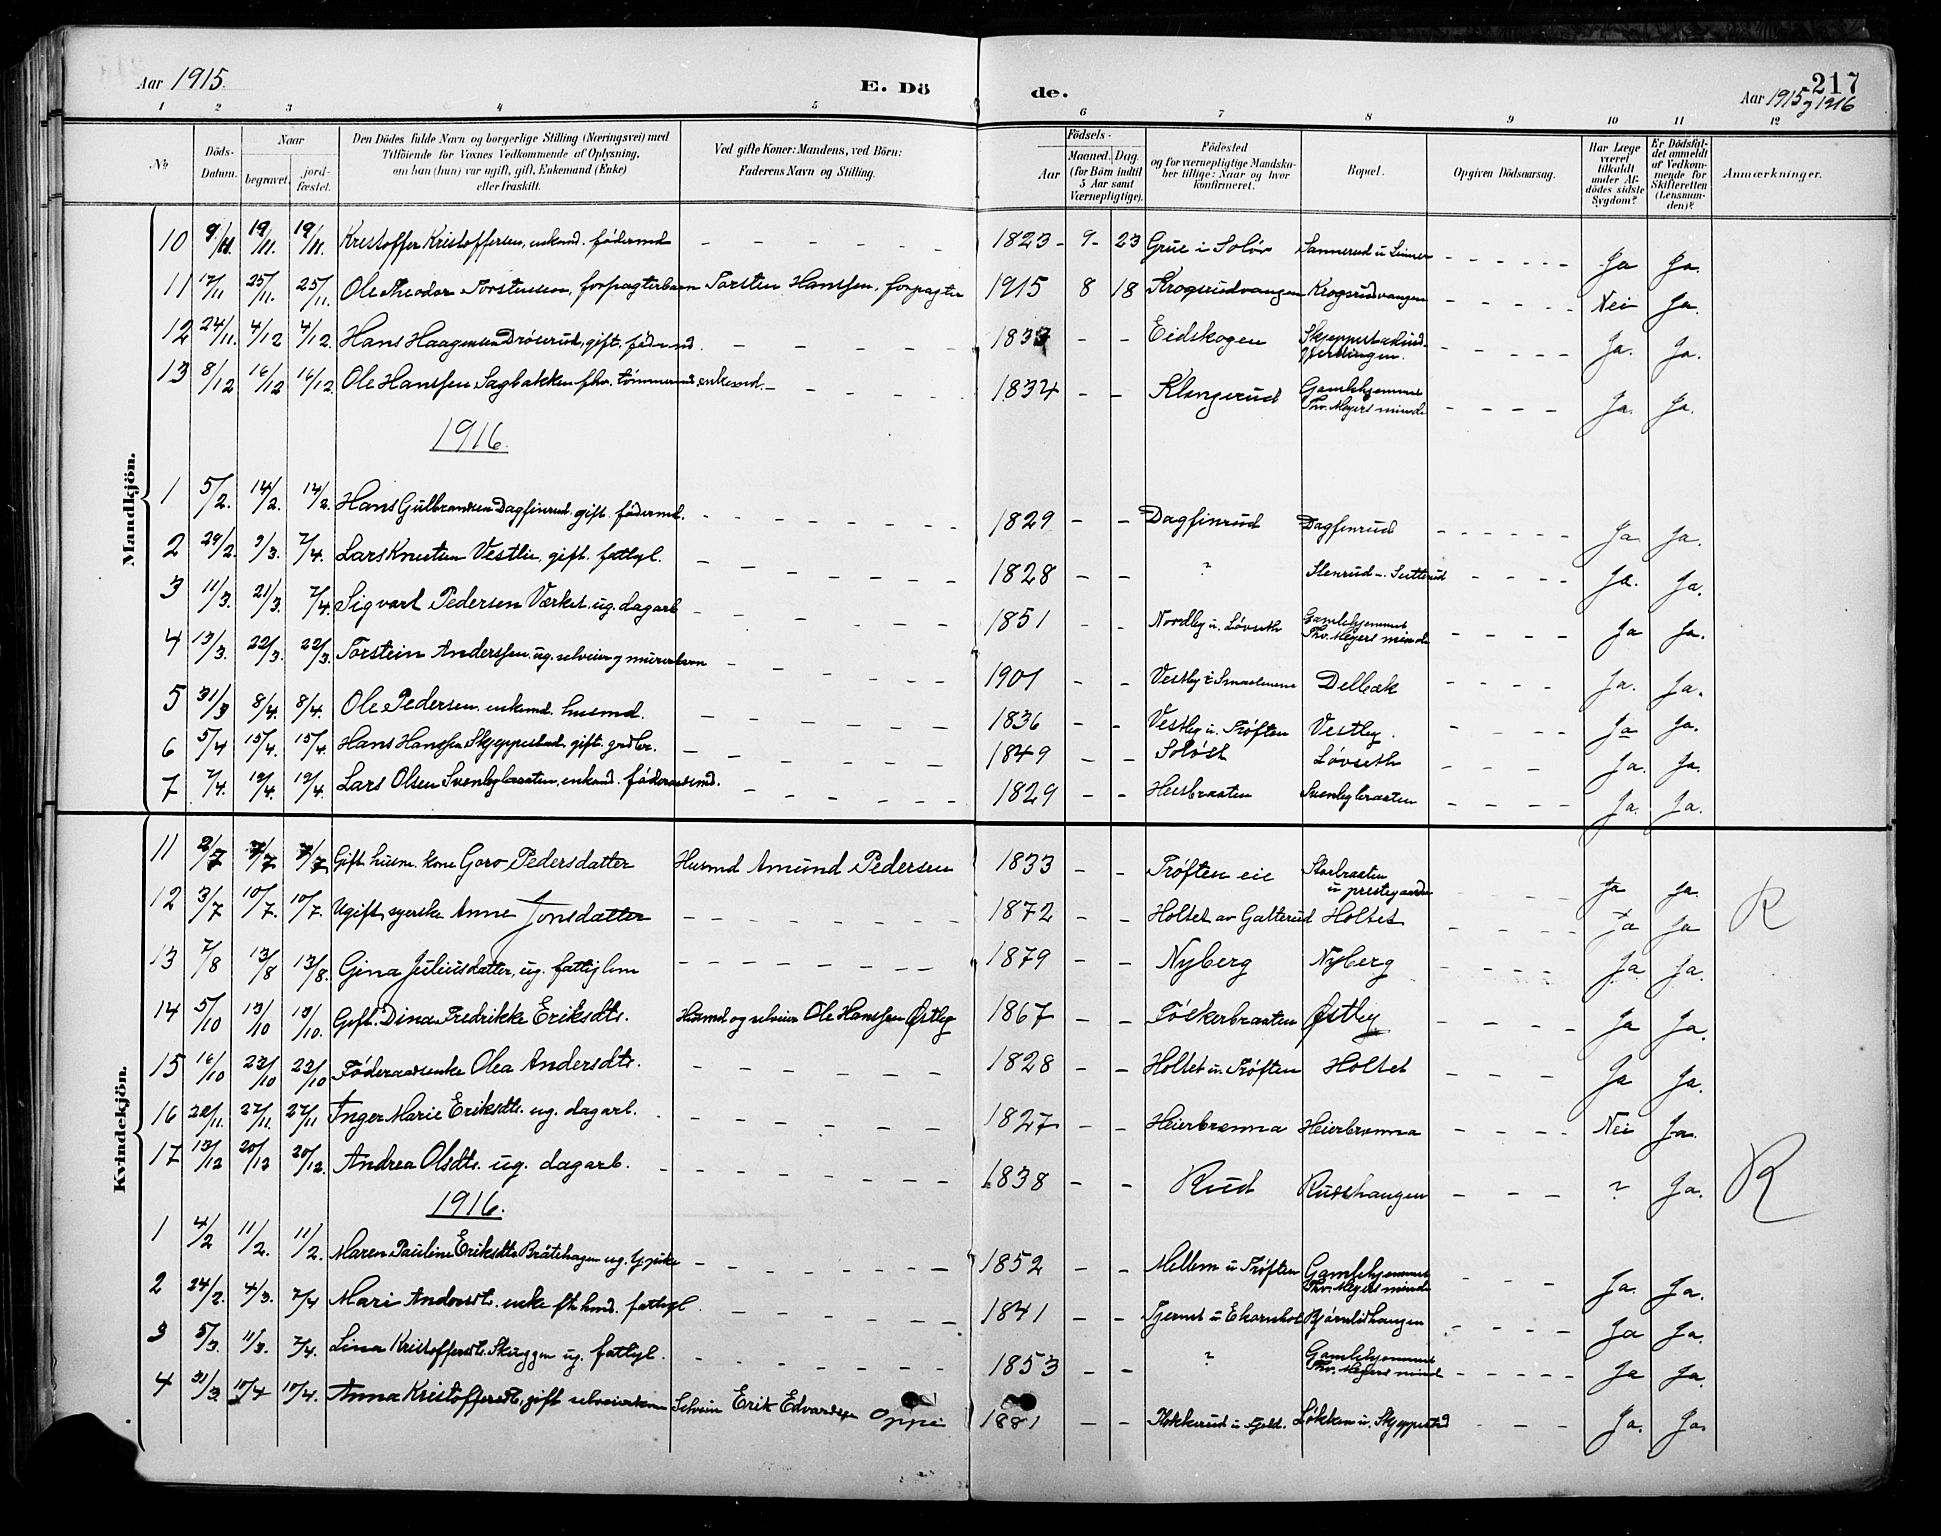 Aar 1915.
E. Dö
de.
217
Aar 1915 og 1916
1 2 3 4 5 6 7 8 9 10 11 12
No
Döds-Datum.
Naar
begravet.
jord-fæstet.
Den Dödes fulde Navn og borgerlige Stilling (Næringsvei) med
Tilföiende for Voxnes Vedkommende af Oplysning,
om han (hun) var ugift, gift, Enkemand (Enke)
eller fraskilt.
Ved gifte Koner: Mandens, ved Börn:
Faderens Navn og Stilling.
Födsels-
Aar
Maaned. Dag.
(for Börn indtil
5 Aar samt
Værnepligtige).
Födested
og for værnepligtige Mandska-
ber tillige: Naar og hvor
konfirmeret.
Bopel.
Opgiven Dödsaarsag.
Har Læge
været
tilkaldt
under Af-
dödes sidste
Sygdom?
Er Dödsfal-
det anmeldt
af Vedkom-
mende for
Skifteretten
(Lensman-
den)?
Anmærkninger.
Mandkjön.
10 9/11 19/11. 19/11. Kristoffer Kristoffersen, enkemd. födermd - - - - - 1823 - 9 - 23 Grue i Solör Sannerud u Linner - - - - - Ja Ja.
11 17/11 25/11. 25/11. Ole Theodor Torstensen, forpagterbarn Torsten Hanssen, forpagter 1915 8 18 Krogsrudvangen Krogsrudvangen - - - - - Nei Ja.
12 24/11. 4/12 4/12. Hans Haagensen Dröserud, gift. födermd. - - - - - 1837 - - Eidskogen - - - - - Ja. Ja.
13 8/12 16/12 16/12. Ole Hanssen Sagbakken fhv. tömmermd, enkemd. - - - - - 1834 - - Klengerud Gamlehjemmet
Thv. Meyers minde - - - - Ja. Ja.
1916.
1 5/2. 14/2. 14/2. Hans Gulbrandsen Dagfinrud. gift. födermd. - - - - - - 1829 - - Dagfinrud Dagfinrud - - - - - - Ja Ja.
2 29/2 9/3. 7/4. Lars Knutsen Vestlie, gift. fattigl. - - - - - - 1828 - - ? Stenrud - Sutterud - - - - Ja. Ja.
3 11/3. 21/3. 7/4. Sigvart Pedersen Værket. ug. dagarb - - - - - - 1851 - - Nordby u. Lövseth Gamlehjemmet
Thv. Meyers minde - - - - Ja Ja.
4 13/3. 22/3. 22/3. Torstein Anderssen. ug. selveier og murersbarn - - - - - 1901 - - Vestby i Smaalenene Delbæk - - - - Ja. Ja.
5 31/3 8/4. 8/4. Ole Pedersen. enkemd. husmd. - - - - - - 1836 - - Vestby u. Tröften Vestby. - - - - Ja Ja.
6 5/4 15/4. 15/4. Hans Hanssen Skjeppestad. gift. grdbr. - - - - - - 1849 - - Solöst Lövseth - - - Ja. Ja.
7 7/4. 19/4. 19/4. Lars Olsen Svenbybraaten, enkemd. föderaadsmd. - - - - - 1829 - - Heisbraaten Svenbybraaten - - - - Ja. Ja.
Kvindekjön.
11 2/7 7/7 7/7 Gift. husm. kone Goro Pedersdatter Husmd Amund Pedersen 1833 - - Tröften eie Storbraaten
u prestegaarden - - - - Ja Ja.
12 3/7 10/7. 10/7. Ugift, syerske Anne Jonsdatter - - - - - - 1872 - - Holtet av Galterud Holtet - - - - Ja Ja R
13 7/8 13/8 13/8. Gina Juliusdatter, ug. fattiglem - - - - - - 1879 - - Nyberg Nyberg - - - - Ja Ja.
14 5/10 13/10 13/10. Gift. Dina Fredrikke Eriksdtr. Husmd og selveier Ole Hanssen Östby 1867 - - Töskerbraaten Östby - - - - Ja Ja.
15 16/10 22/10 22/10 Föderaadsenke Olea Andersdtr. - - - - - - 1828 - - Holtet u. Tröften Holtet - - - - Ja Ja.
16 20/11. 27/11. 27/11 Inger Marie Eriksdtr. ug. dagarb. - - - - - - 1827 - - Heierbrænna Heierbrænna - - - - Nei Ja.
17 13/12 20/12 20/12. Andrea Olsdtr. ug. dagarb. - - - - - - - 1838 - - Rud Rudshaugen - - - ? Ja. R
1916.
1 4/2 11/2. 11/2. Maren Pauline Eriksdtr. Bråtehagen ug. - - - - - - 1852 - - Mellem u Tröften Gamlehjemmet
Thv. Meyers minde - - - Ja. Ja.
2 24/2. 4/3. 7/4 Mari Andersdtr. enke fhv husmd. fattigl. - - - - - - 1841 - - Tjernet u Ekornhol Bjørnlidhaugen - - - - Ja Ja.
3 5/3. 11/3. 7/4. Lina Kristoffersdtr. Skuggen ug. fattigl. - - - - - - 1853 - - ? Gamlehjemmet
Thv. Meyers minde - - - - Ja Ja.
4 31/3 10/4 10/4. Anna Kristoffersdtr, gift selveierkone Selveier Erik Edvardsen Oppi 1881 - - Klokkerud u Fjeld. Lökken u. Skjeppestad - - Ja. Ja.